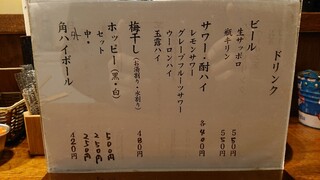 ドリンク
ビール
生サッポロ 550円
瓶キリン 550円
サワー・酎ハイ 各400円
レモンサワー
グレープフルーツサワー
ウーロンハイ
玉露ハイ
梅干し(お湯割り・水割り) 480円
ホッピー(黒・白)
セット 500円
中・ 250円
外 250円
角ハイボール 420円